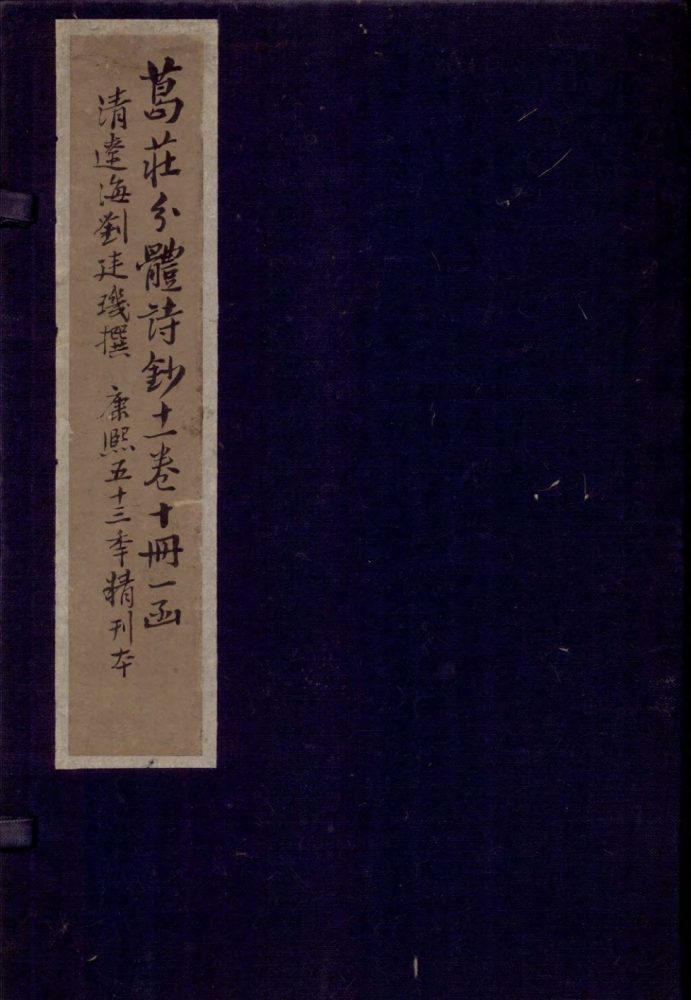 葛莊分體詩鈔十一卷十冊一函
清遼海劉廷璣撰 康熙五十三年精刊本